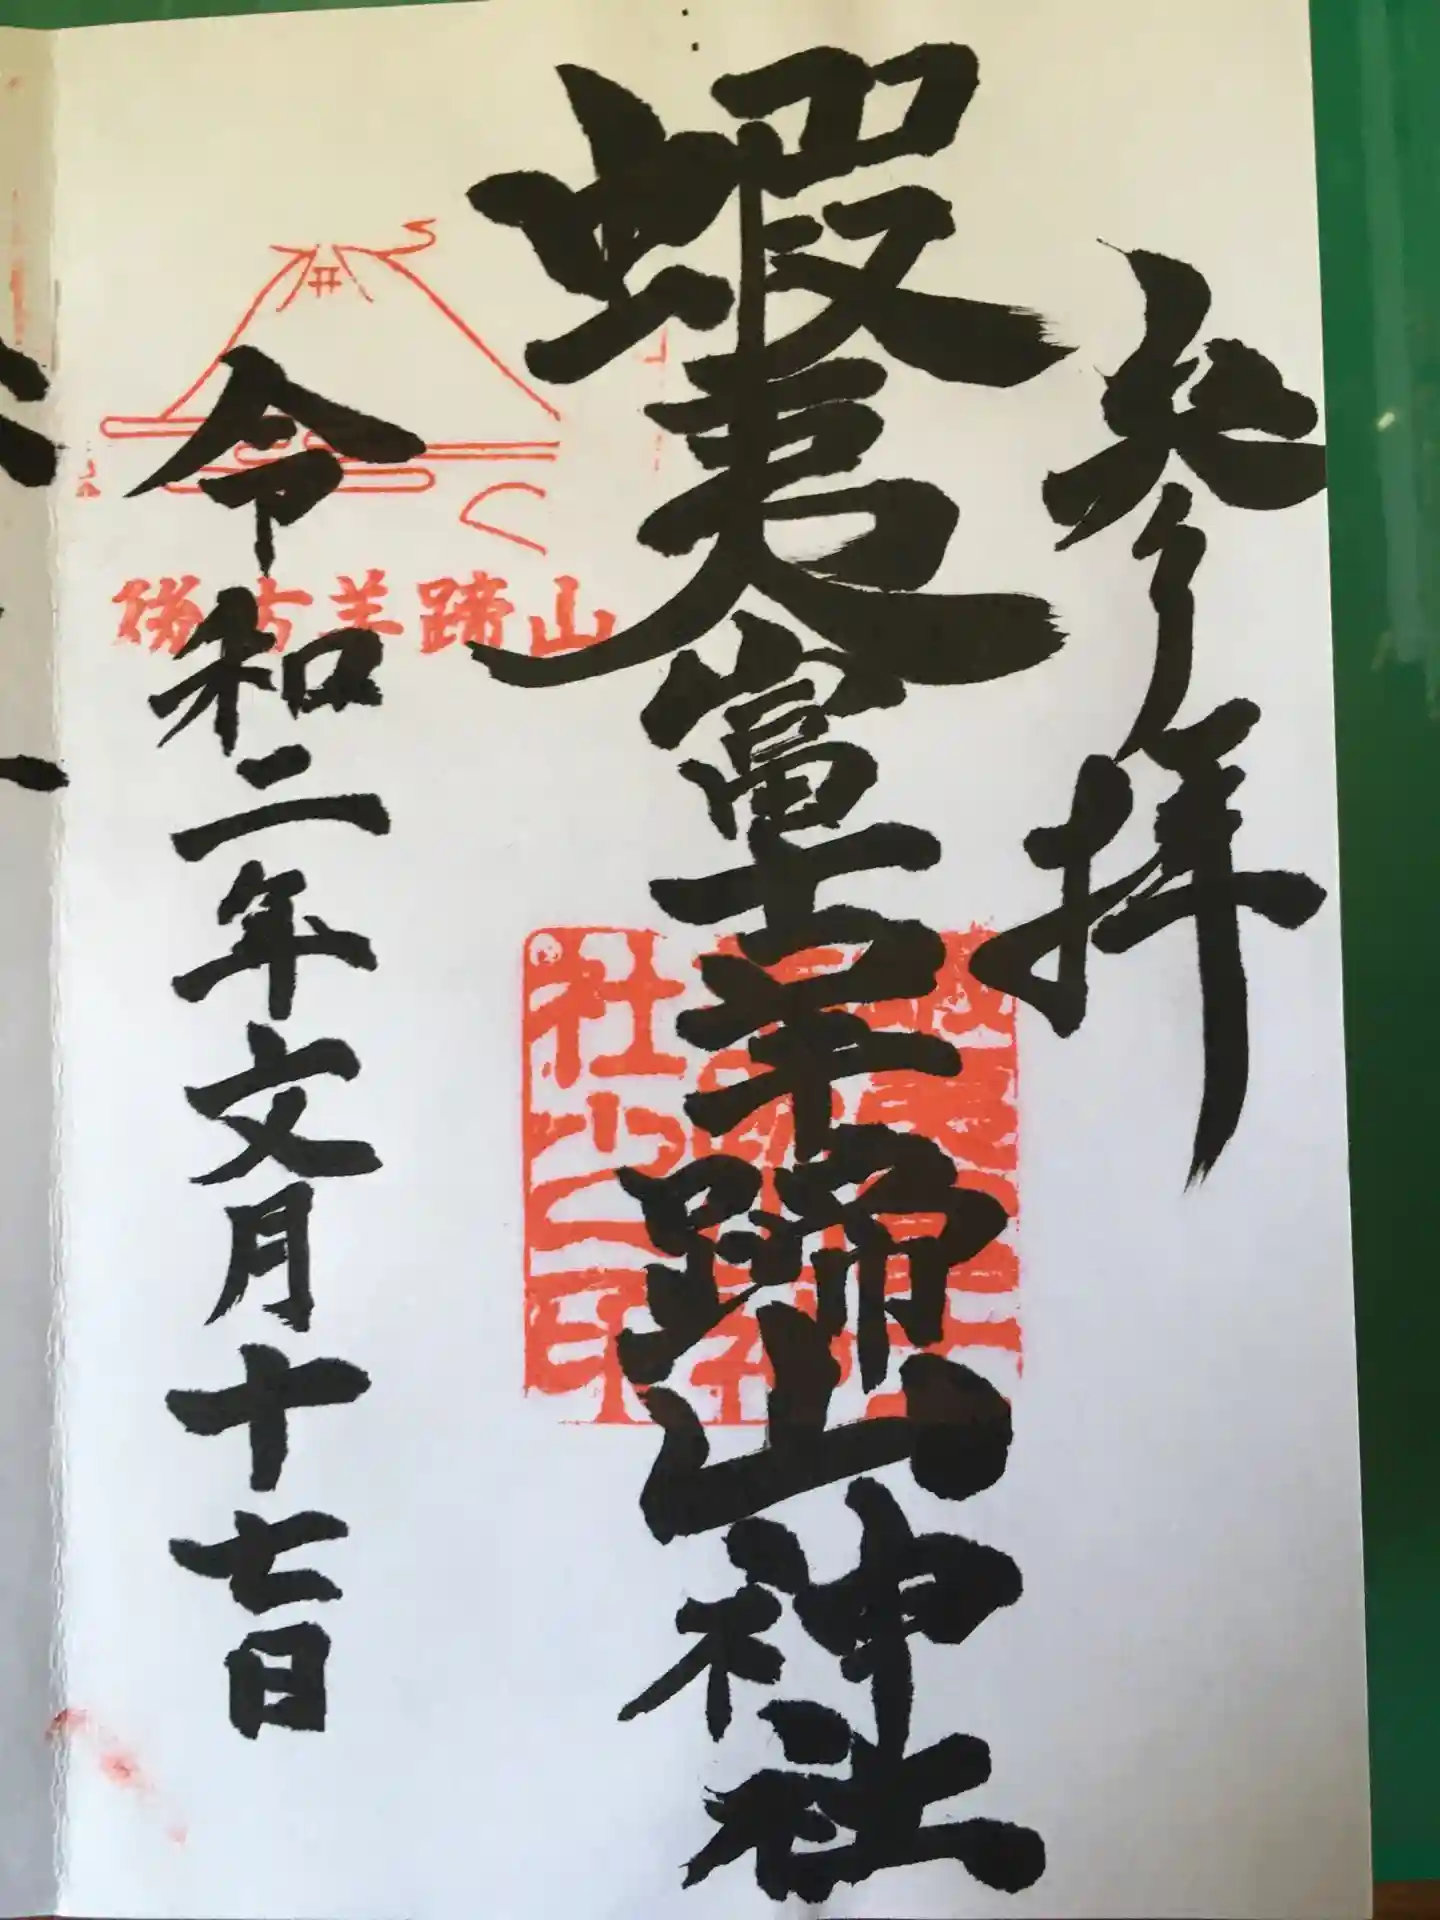 参拝
蝦夷富士羊蹄山神社
後方羊蹄山
令和二年文月十七日